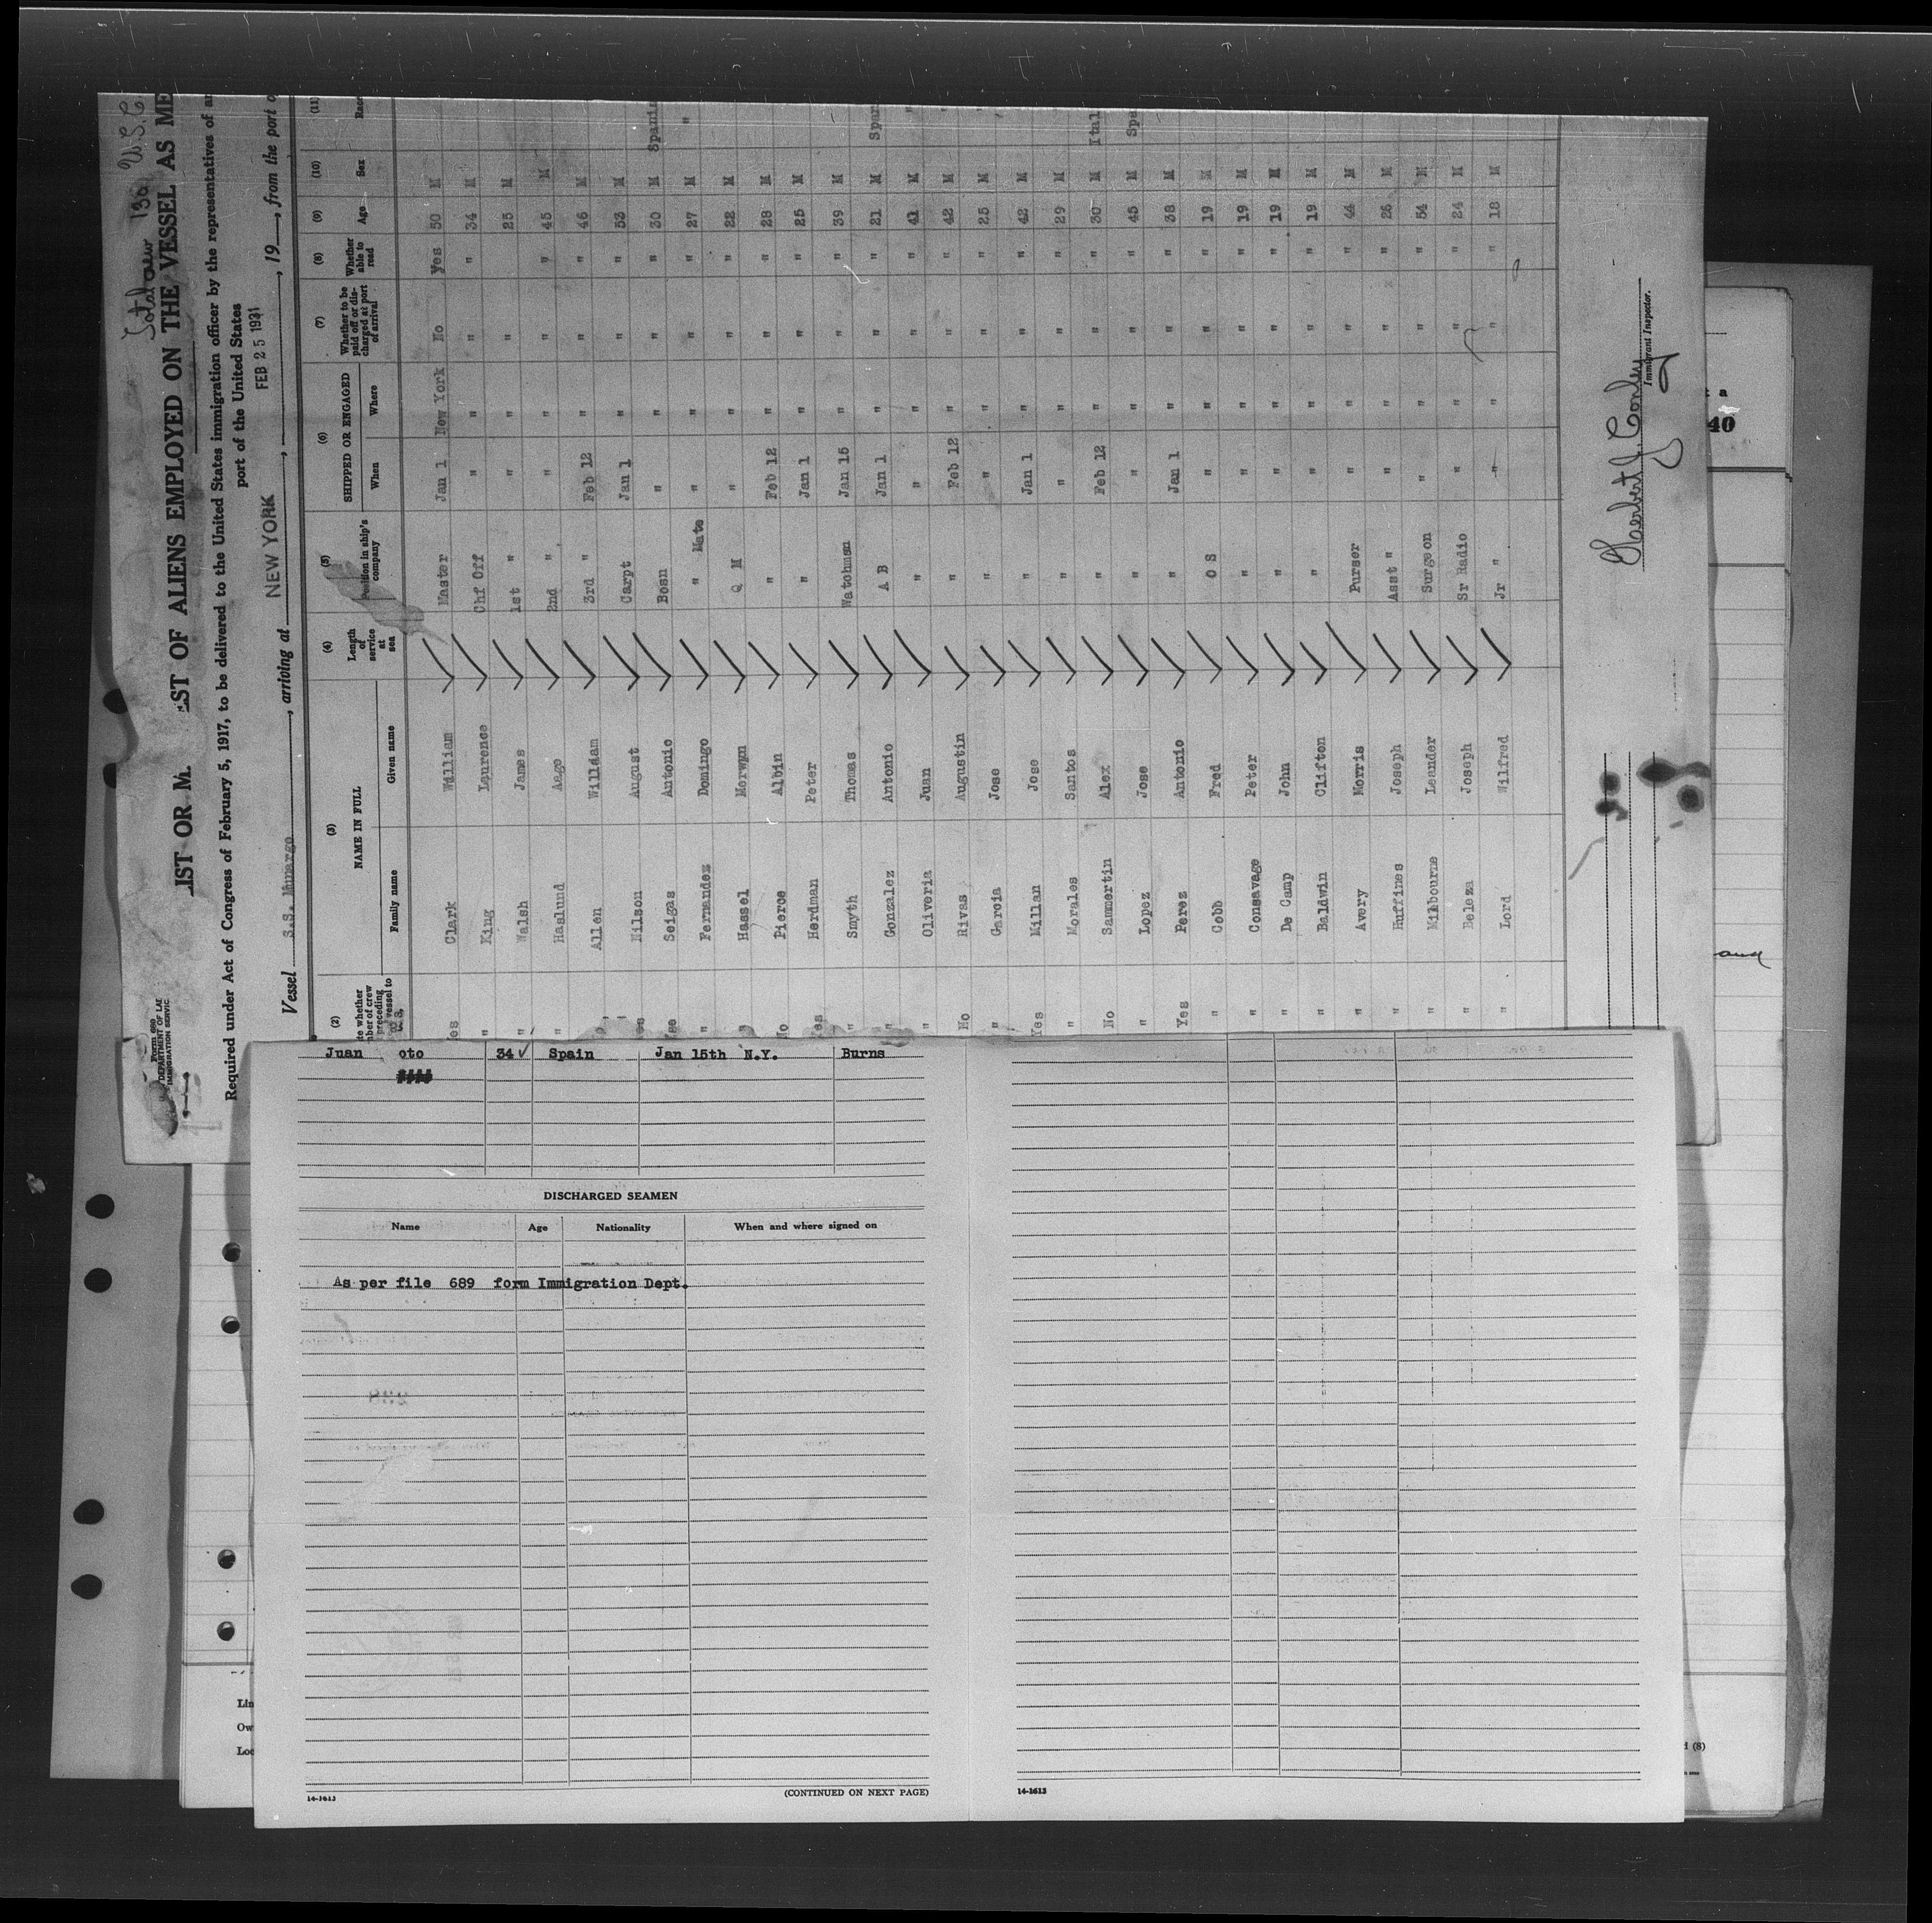 Total crew 136 U.S.C.
Form 689
DEPARTMENT OF LAB
IMMIGRATION SERVIC
IST OR M. ST OF ALIENS EMPLOYED ON THE VESSEL AS ME
Required under Act of Congress of February 5, 1917, to be delivered to the United States immigration officer by the representatives of
port of the United States
Vessel S.S. Munargo, arriving at NEW YORK, FEB 25 1931, 19 , from the port o
(2) (3) (4) (5) (6) (7) (8) (9) (10) (11)
NAME IN FULL
Family name Given name
Length of service at sea
Position in ship's company
SHIPPED OR ENGAGED
When Where
Whether to be paid off or discharged at port of arrival
Whether able to read
Age
Sex
Race
es Clark William Master Jan 1 New York No Yes 50 M
" King Laurence Chf Off " " " " 34 M
" Walsh James 1st " " " " 25 M
" Haslund Aage 2nd " " " " " 45 M
Allen William 3rd " Feb 12 " " " 46 M
es Nilson August Carpt Jan 1 " " " 53 M
es Seigas Antonio Bosn " " " " 30 M Spanis
" Fernandez Domingo " Mate " " " " 27 M "
" Hassel Merwyn Q M " " " " 22 M
No Pierce Albin " Feb 12 " " " 28 M
Yes Herdman Peter " Jan 1 " " " 25 M
" Smyth Thomas Watchman Jan 15 " " " 39 M
" Gonzalez Antonio A B Jan 1 " " " 21 M Span
" Oliveria Juan " " " " " 41 M "
No Rivas Augustin " Feb 12 " " " 42 M
" Garcia Jose " " " " " 25 M
Yes Millan Jose " Jan 1 " " " 42 M
" Morales Santos " " " " " 29 M
No Sammertin Alex " Feb 12 " " " 30 M Ital
" Lopez Jose " " " " " 45 M Spa
Yes Perez Antonio " Jan 1 " " " 38 M
" Cobb Fred O S " " " " 19 M
" Consavage Peter " " " " " 19 M
" De Camp John " " " " " 19 M
" Baldwin Clifton " " " " " 19 M
" Avery Morris Purser " " " " 44 M
" Huffines Joseph Asst " " " " " 26 M
" Milbourne Leander Surgeon " " " " 54 M
" Beleza Joseph Sr Radio " " " " 24 M
" Lord Wilfred Jr " " " " " 18 M
Herbert J. Conley
Immigrant Inspector.
40
and
Juan oto 34 ✓ Spain Jan 15th N.Y. Burns
DISCHARGED SEAMEN
Name Age Nationality When and where signed on
As per file 689 form Immigration Dept.
14-1613 (CONTINUED ON NEXT PAGE)
14-1613
Lin
Ow
Loc
(8)